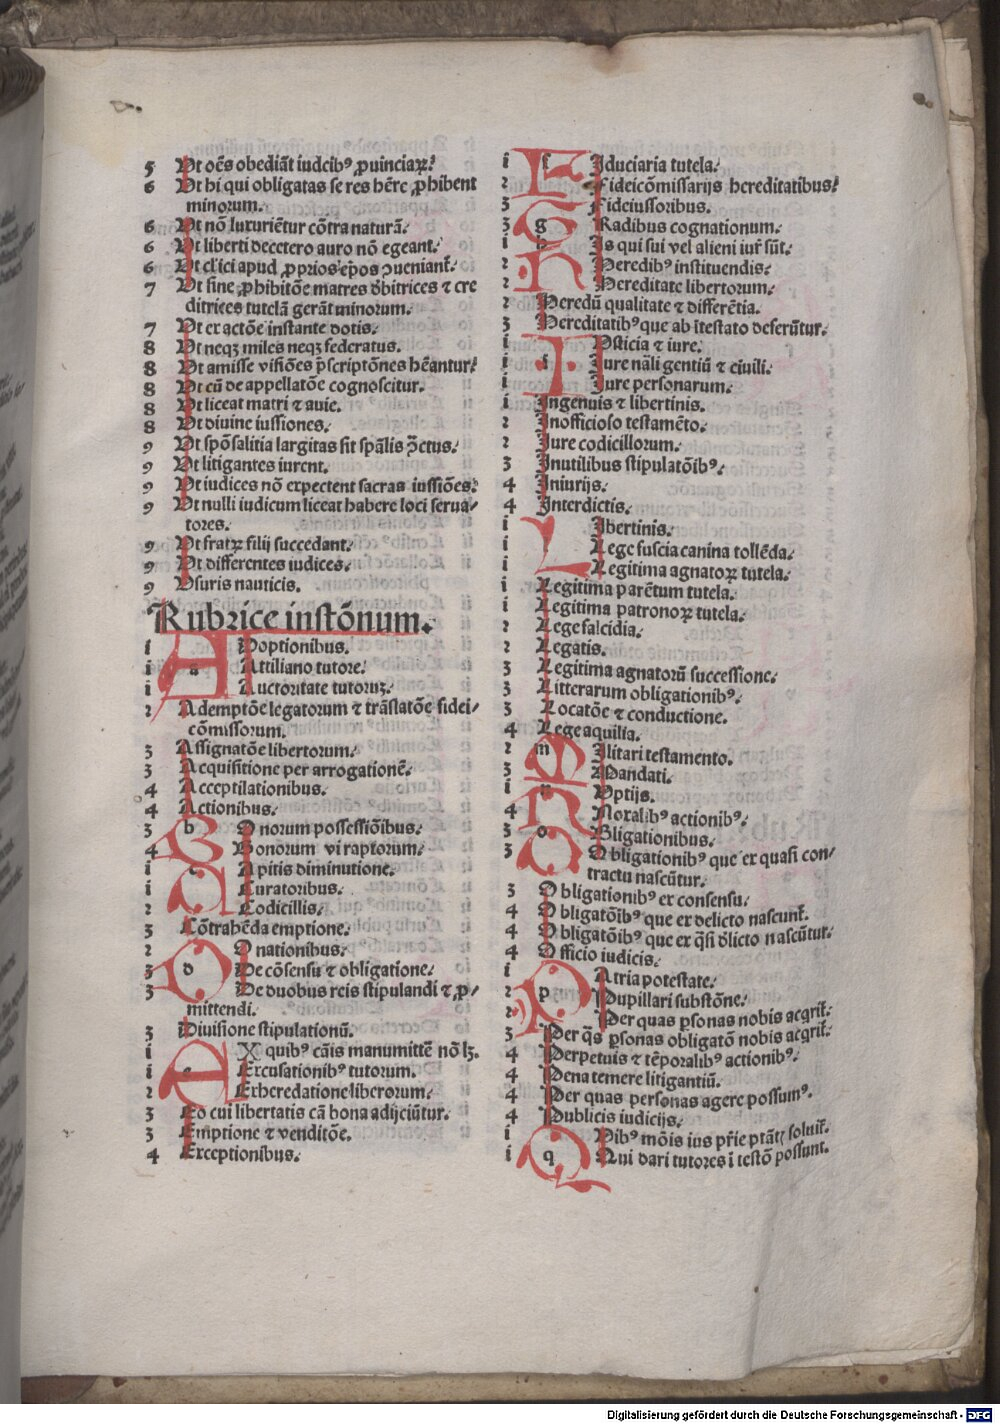 5 Vt oēs obediāt iudcibꝰ ꝓuinciaꝝ.
6 Vt hi qui obligatas se res hēre ꝓhibent
minorum.
6 Vt nō luxuriētur cōtra naturā.
6 Vt liberti decetero auro nō egeant.
6 Vt cl'ici apud ꝓprios ep̄os ꝯueniant̄.
7 Vt sine ꝓhibitōe matres d̄bitrices ⁊ cre
ditrices tutelā gerāt minorum.
7 Vt ex actōe instante dotis.
8 Vt neqꝫ miles neqꝫ federatus.
8 Vt amisse visiōes p̄scriptōnes hēantur.
8 Vt cū de appellatōe cognoscitur.
8 Vt liceat matri ⁊ auie.
8 Vt diuine iussiones.
9 Vt spōsalitia largitas sit spālis ꝯ̄ctus.
9 Vt litigantes iurent.
9 Vt iudices nō expectent sacras iussiōes.
9 Vt nulli iudicum liceat habere loci serua/
tores.
9 Vt fratꝝ filij succedant.
9 Vt differentes iudices.
9 Vsuris nauticis.
Rubrice instōnum.
i a Doptionibus.
i Attiliano tutore.
i Auctoritate tutorum.
2 Ademptōe legatorum ⁊ trāslatōe fidei/
cōmissorum.
3 Assignatōe libertorum.
3 Acquisitione per arrogationē.
4 Acceptilationibus.
4 Actionibus.
3 b Onorum possessiōibus.
4 Bonorum vi raptorum.
i c Apitis diminutione.
i Curatoribus.
2 Codicillis.
3 Cōtrahēda emptione.
2 Onationibus.
3 d De cōsensu ⁊ obligatione.
3 De duobus reis stipulandi ⁊ ꝓ/
mittendi.
3 Diuisione stipulationū.
i X quibꝰ cāis manumittē nō lꝫ.
i e Excusationibꝰ tutorum.
2 Exheredatione liberorum.
3 Eo cui libertatis cā bona adijciūtur.
3 Emptione ⁊ venditōe.
4 Exceptionibus.
i f Iduciaria tutela.
2 Fideicōmissarijs hereditatibus.
3 Fideiussoribus.
3 g Radibus cognationum.
i h Is qui sui vel alieni iur̄ sūt.
2 Heredibꝰ instituendis.
2 Hereditate libertorum.
2 Heredū qualitate ⁊ differētia.
3 Hereditatibꝰ que ab ītestato deferūtur.
i Vsticia ⁊ iure.
i i Iure nāli gentiū ⁊ ciuili.
i Iure personarum.
i Ingenuis ⁊ libertinis.
2 Inofficioso testamēto.
2 Iure codicillorum.
3 Inutilibus stipulatōibꝰ.
4 Iniurijs.
4 Interdictis.
i Ibertinis.
i Lege fuscia canina tollēda.
i Legitima agnatoꝝ tutela.
i Legitima parētum tutela.
i Legitima patronoꝝ tutela.
2 Lege falcidia.
2 Legatis.
3 Legitima agnatorū successione.
3 Litterarum obligationibꝰ.
3 Locatōe ⁊ conductione.
4 Lege aquilia.
2 m Ilitari testamento.
3 Mandati.
i n Vptijs.
4 Noxalibꝰ actionibꝰ.
3 o Bligationibus.
3 Obligationibꝰ que ex quasi con/
tractu nascūtur.
3 Obligationibꝰ ex consensu.
4 Obligatōibꝰ que ex delicto nascunt̄.
4 Obligatōibꝰ que ex q̄si d̄licto nascūtur.
4 Officio iudicis.
i Atria potestate.
2 p Pupillari substōne.
2 Per quas p̱sonas nobis acqrit̄.
3 Per q̄s p̱sonas obligatō nobis acqrit̄.
4 Perpetuis ⁊ tēporalibꝰ actionibꝰ.
4 Pena temere litigantiū.
4 Per quas personas agere possumꝰ.
4 Publicis iudicijs.
i Vibꝰ mōis ius p̄rie ptāt̄ soluit̄.
i q Qui dari tutores ī testō possunt.
Digitalisierung gefördert durch die Deutsche Forschungsgemeinschaft - DFG